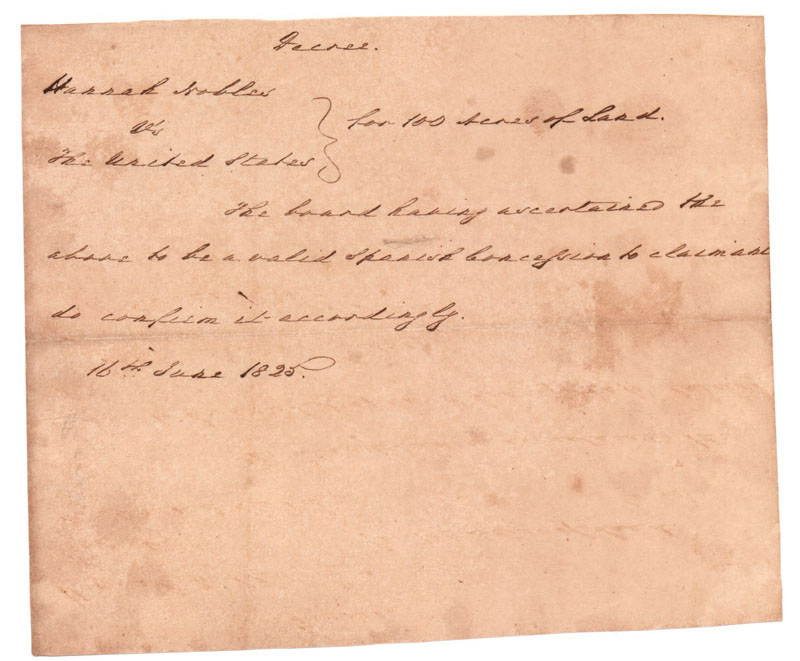 Decree.
Hannah Nobles
Vs
The United States
} for 100 Acres of Land.
The board having ascertained the
above to be a valid Spanish Concession to claimant
do confirm it accordingly.
16th June 1825.